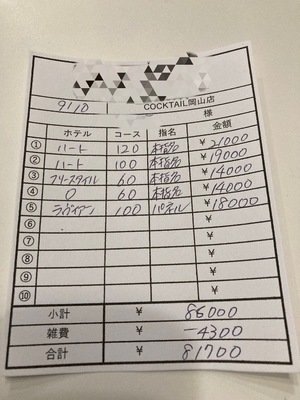 9/10 COCKTAIL岡山店
様
ホテル コース 指名 金額
① ハート 120 本指名 ¥21000
② ハート 100 本指名 ¥19000
③ フリースタイル 60 本指名 ¥14000
④ O 60 本指名 ¥14000
⑤ ラヴィアン 100 パネル ¥18000
⑥ ¥
⑦ ¥
⑧ ¥
⑨ ¥
⑩ ¥
小計 ¥ 86000
雑費 ¥ -4300
合計 ¥ 81700